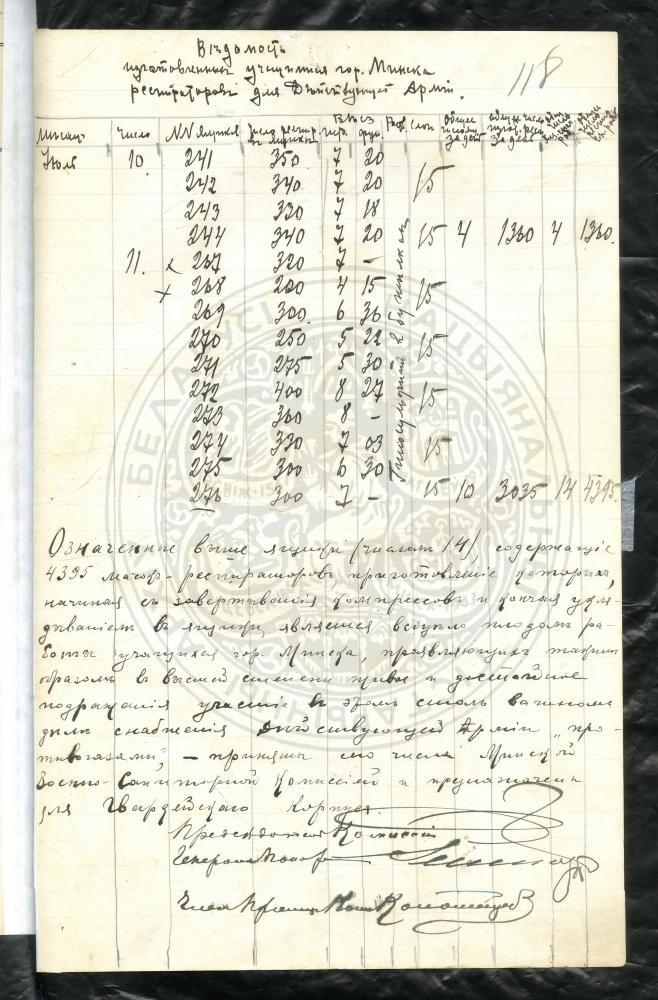 Вѣдомость
изготовленныхъ учащимися гор. Минска
респираторовъ для Дѣйствующей Арміи.
118
Мѣсяцъ Число NN ящика Число респир. въ ящикѣ Вѣсъ пуд. фун. Слои Общее число за день общее число за день
Іюль 10. 241 350 7 20
242 340 7 20 15
243 330 7 18
244 340 7 20 15 4 1360 4 1360.
11. 267 320 7 -
+ 268 200 4 15 15
269 300. 6 36
270 250 5 22 15
271 275 5 30
272 400 8 27 15
273 360 8 -
274 330 7 03 15
275 300 6 30
276 300 7 - 15 10 3035 14 4395
Означенные выше ящики (числомъ 14), содержащіе
4395 масок-респираторовъ, приготовленіе которыхъ,
начиная съ завертыванія компрессовъ и кончая укла-
дываніемъ въ ящики, является всецѣло плодомъ ра-
боты учащихся гор. Минска, проявляющихъ такимъ
образомъ въ высшей степени живое и достойное
подражанія участіе въ этомъ столь важномъ
дѣлѣ снабженія дѣйствующей Арміи „про-
тивогазами", - приняты по числу Минской
Военно-Санитарной Комиссіей и предназначены
для Гвардейскаго Корпуса.
Предсѣдатель Комиссіи
Генералъ Маіоръ
Членъ